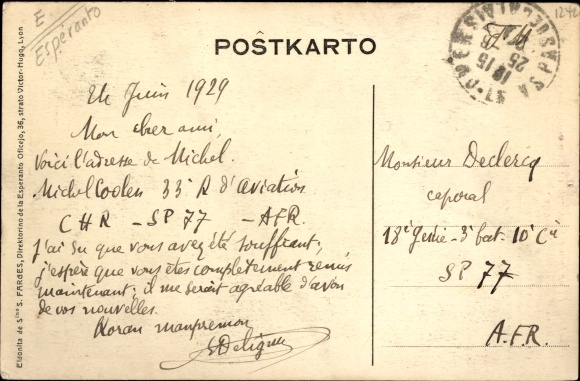 E
Espéranto
POŜTKARTO
24 Juin 1929
Mon cher ami,
voici l'adresse de Michel.
Michel 33e R d'aviation
CHR - SP 77 - AFR.
j'ai su que vous avez été souffrant;
j'espère que vous êtes complètement remis
maintenant; il me serait agréable d'avoir
de vos nouvelles.
Koran manpremon
Monsieur Declercq
caporal
18e Génie - 3e bat - 10e Cie
SP 77
A.F.R.
Eldonita de Sino S. FARGES, Direktorino de la Esperanto Oficejo, 36, strato Victor-Hugo, Lyon